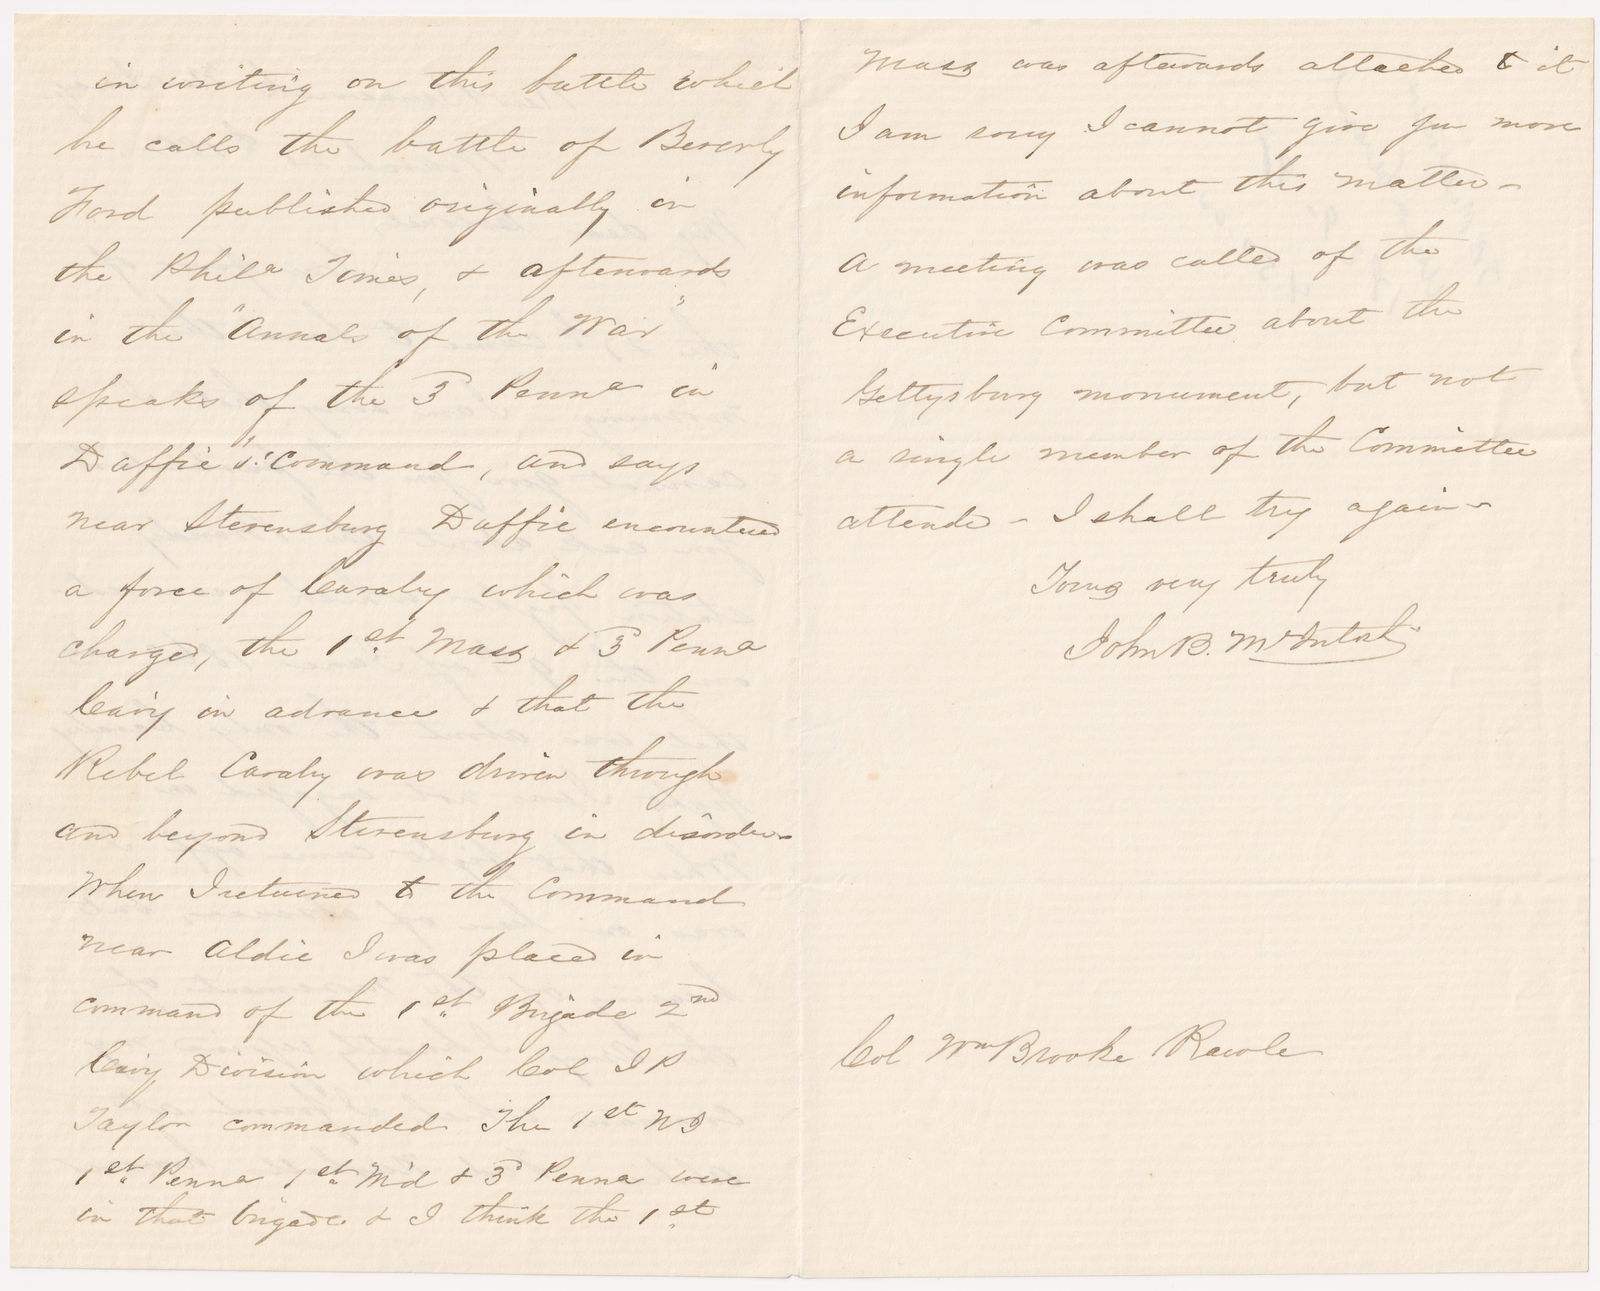 in writing on this battle which
he calls the battle of Beverly
Ford published originally in
the Phila Times, & afterwards
in the "Annals of the War"
speaks of the 3d Penna in
Duffie's' Command, and says
near Stevensburg Duffie encountered
a force of Cavalry which was
charged, the 1st Mass & 3d Penna
Cavy in advance & that the
Rebel Cavalry was driven through
and beyond Stevensburg in disorder
When I returned to the Command
near Aldie I was placed in
command of the 1st Brigade 2nd
Cavy Division which Col J P
Taylor commanded The 1st NJ
1st Penna 1st Md & 3d Penna were
in that brigade & I think the 1st
Mass was afterwards attached to it
I am sorry I cannot give you more
information about this matter -
A meeting was called of the
Executive Committee about the
Gettysburg monument, but not
a single member of the Committee
attended - I shall try again -
Yours very truly
John B. McIntosh
Col Wm Brooke Rawle